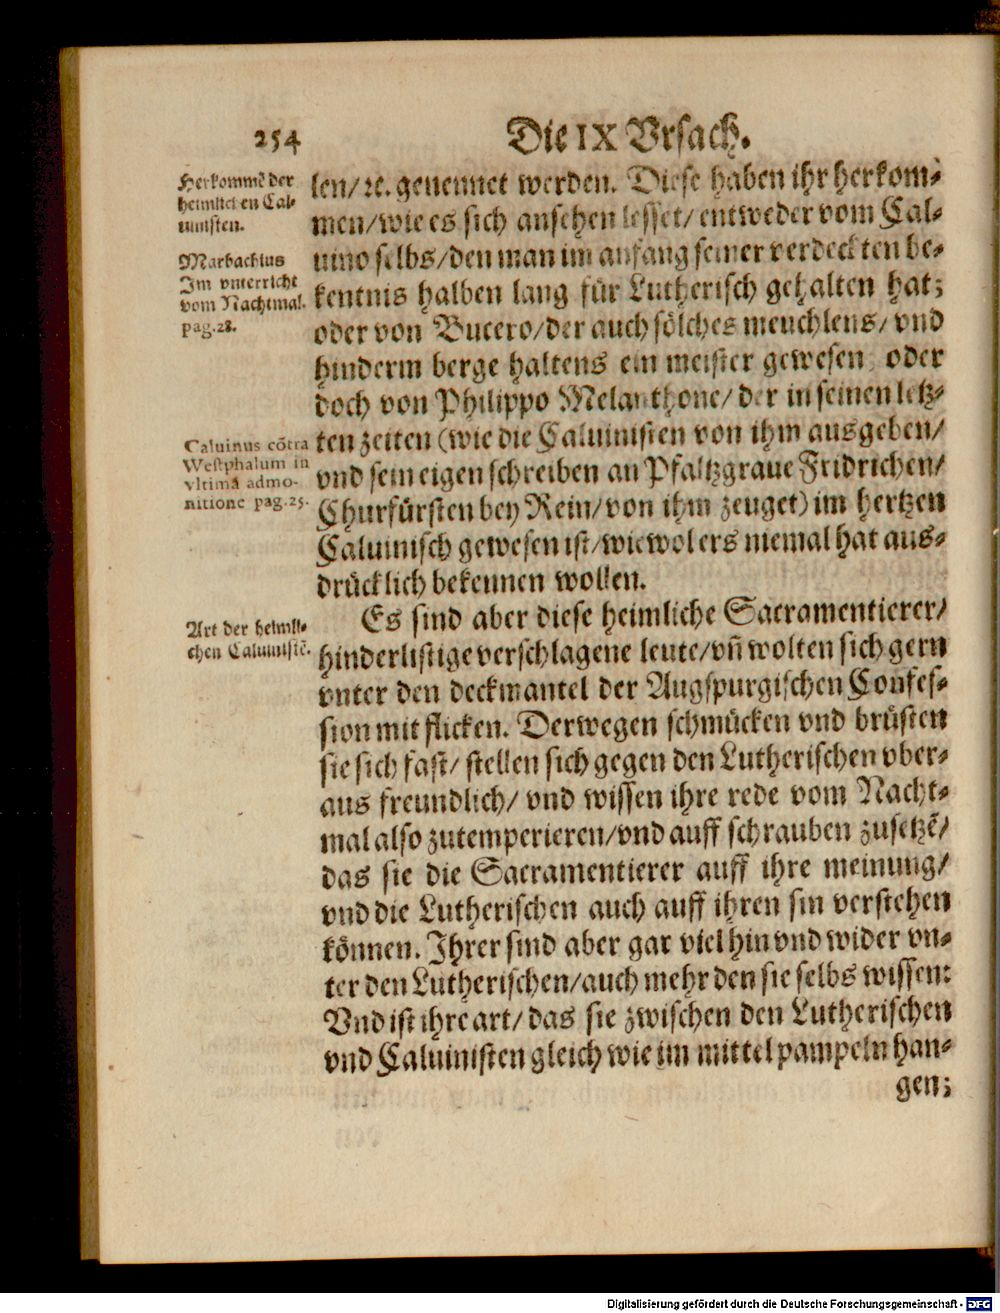 254
Die IX Vrsach.
Herkommē der
heimlichen Cal-
uinisten.
Marbachius
Im vnterricht
vom Nachtmal.
pag.28.
Caluinus cōtra
Westphalum in
vltimā admo-
nitione pag.25.
Art der heimli-
chen Caluinistē.
len/ ꝛc. genennet werden. Diese haben ihr herkom-
men/ wie es sich ansehen lesset/ entweder vom Cal-
uino selbs/ den man im anfang seiner verdeckten be-
kentnis halben lang für Lutherisch gehalten hat;
oder von Bucero/ der auch sölches meuchlens/ vnd
hinderm berge haltens ein meister gewesen; oder
doch von Philippo Melanthone/ der in seinen letz-
ten zeiten (wie die Caluinisten von ihm ausgeben/
vnd sein eigen schreiben an Pfaltzgraue Fridrichen/
Churfürsten bey Rein/ von ihm zeuget) im hertzen
Caluinisch gewesen ist/ wiewol ers niemal hat aus-
drücklich bekennen wollen.
Es sind aber diese heimliche Sacramentierer/
hinderlistige verschlagene leute/ vñ wolten sich gern
vnter den deckmantel der Augspurgischen Confes-
sion mit flicken. Derwegen schmücken vnd brüsten
sie sich fast/ stellen sich gegen den Lutherischen vber-
aus freundlich/ vnd wissen ihre rede vom Nacht-
mal also zutemperieren/ vnd auff schrauben zusetzē/
das sie die Sacramentierer auff ihre meinung/
vnd die Lutherischen auch auff ihren sin verstehen
können. Ihrer sind aber gar viel hin vnd wider vn-
ter den Lutherischen/ auch mehr den sie selbs wissen:
Vnd ist ihre art/ das sie zwischen den Lutherischen
vnd Caluinisten gleich wie im mittel pampeln han-
gen;
Digitalisierung gefördert durch die Deutsche Forschungsgemeinschaft - DFG